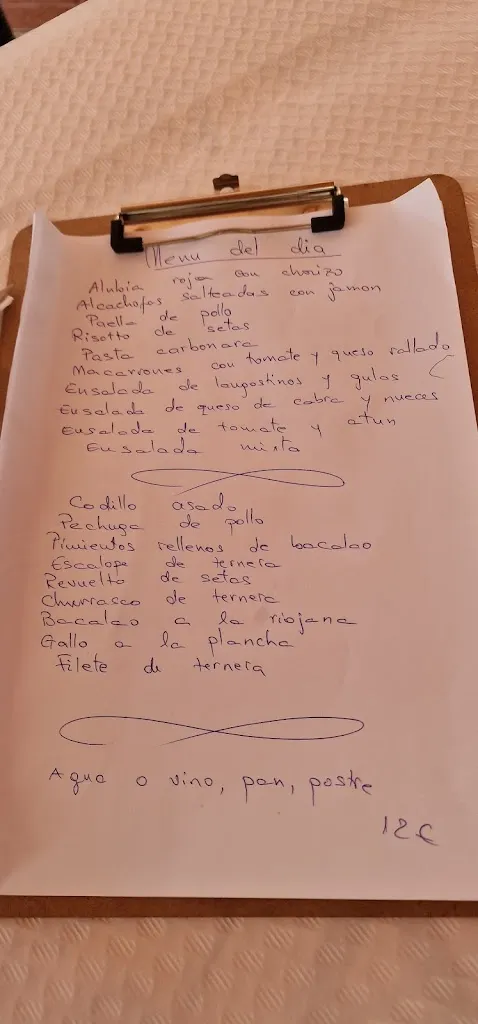 Menu del dia
Alubia roja con chorizo
Alcachofas salteadas con jamon
Paella de pollo
Risotto de setas
Pasta carbonara
Macarrones con tomate y queso rallado
Ensalada de langostinos y gulas
Ensalada de queso de cabra y nueces
Ensalada de tomate y atun
Ensalada mixta
Codillo asado
Pechuga de pollo
Pimientos rellenos de bacalao
Escalope de ternera
Revuelto de setas
Churrasco de ternera
Bacalao a la riojana
Gallo a la plancha
Filete de ternera
Agua o vino, pan, postre
12€